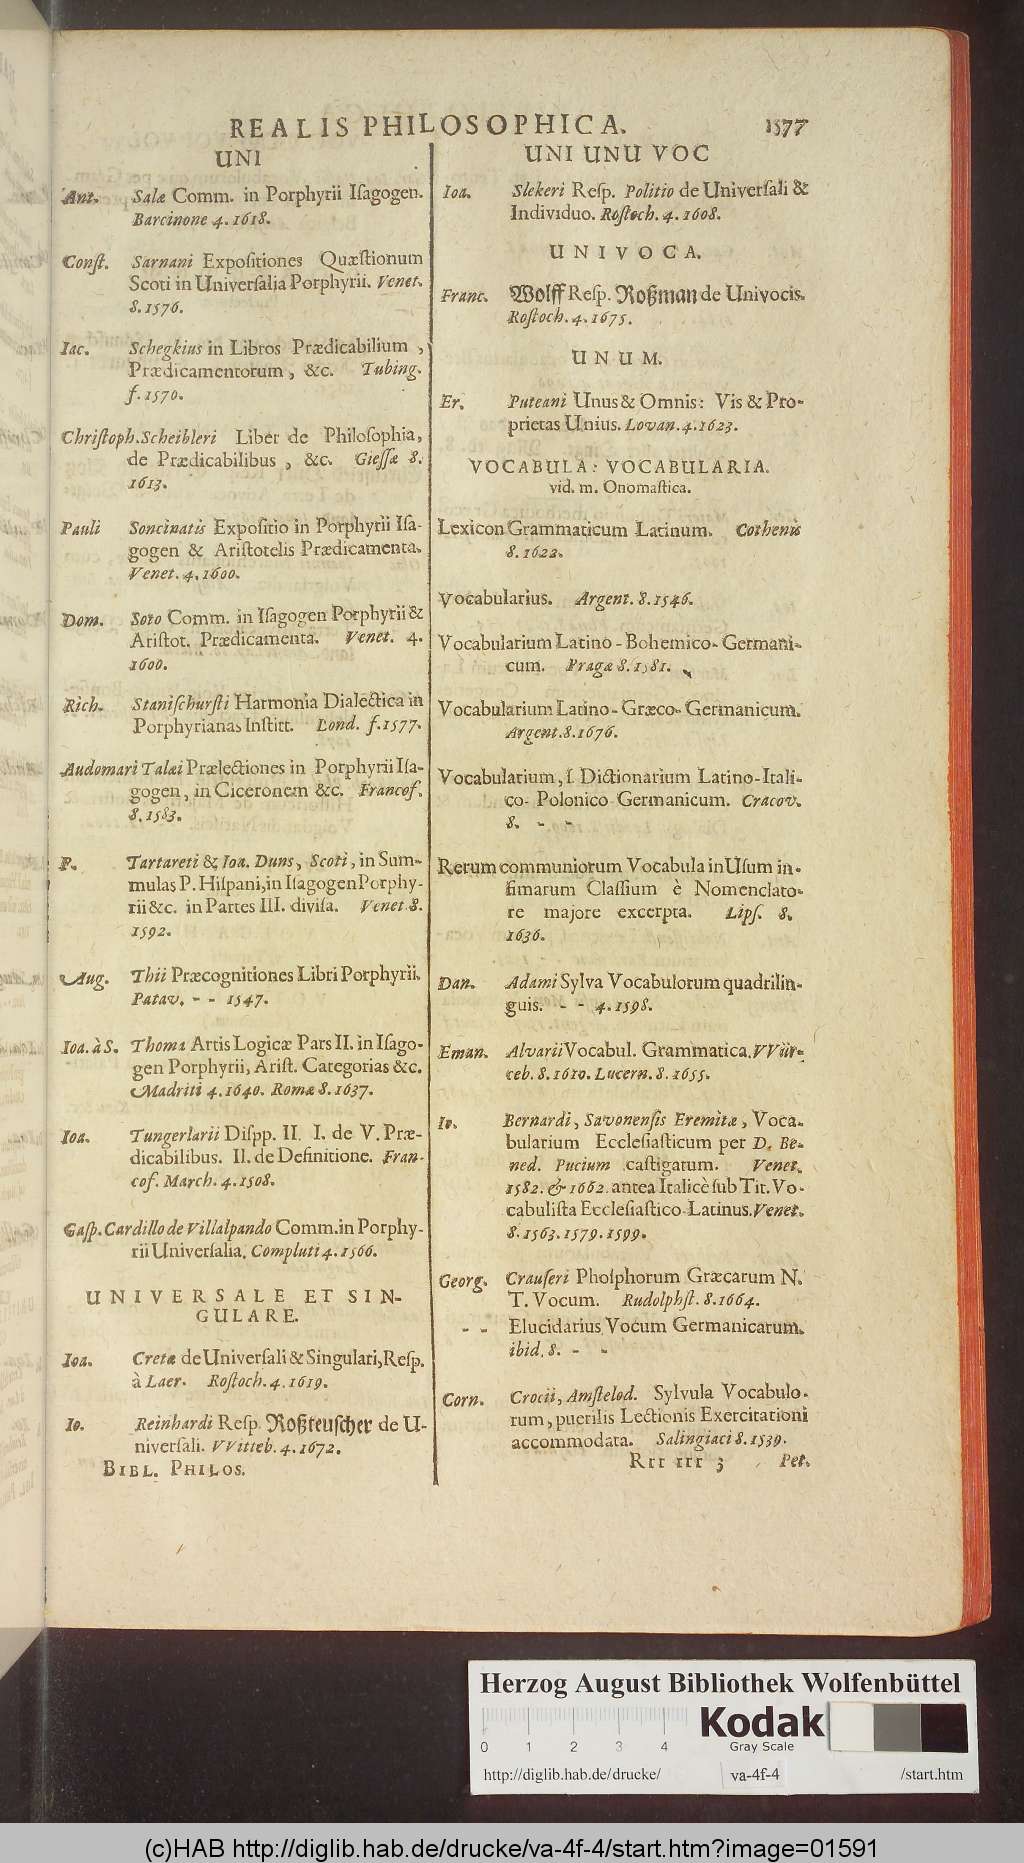 REALIS PHILOSOPHICA. 1577
UNI
Ant. Salæ Comm. in Porphyrii Isagogen.
Barcinone 4. 1618.
Const. Sarnani Expositiones Quæstionum
Scoti in Universalia Porphyrii. Venet.
8. 1576.
Iac. Schegkius in Libros Prædicabilium,
Prædicamentorum, &c. Tubing.
f. 1570.
Christoph. Scheibleri Liber de Philosophia,
de Prædicabilibus, &c. Giessæ 8.
1613.
Pauli Soncinatis Expositio in Porphyrii Isa-
gogen & Aristotelis Prædicamenta.
Venet. 4. 1600.
Dom. Soto Comm. in Isagogen Porphyrii &
Aristot. Prædicamenta. Venet. 4.
1600.
Rich. Stanischursti Harmonia Dialectica in
Porphyrianas Institt. Lond. f. 1577.
Audomari Talæi Prælectiones in Porphyrii Isa-
gogen, in Ciceronem &c. Francof.
8. 1583.
P. Tartareti & Ioa. Duns, Scoti, in Sum-
mulas P. Hispani, in Isagogen Porphy-
rii &c. in Partes III. divisa. Venet 8.
1592.
Aug. Thii Præcognitiones Libri Porphyrii.
Patav. - - 1547.
Ioa. à S. Thoma Artis Logicæ Pars II. in Isago-
gen Porphyrii, Arist. Categorias &c.
Madriti 4. 1640. Romæ 8. 1637.
Ioa. Tungerlarii Dispp. II. I. de V. Præ-
dicabilibus. II. de Definitione. Fran-
cof. March. 4. 1508.
Gasp. Cardillo de Villalpando Comm. in Porphy-
rii Universalia. Compluti 4. 1566.
UNIVERSALE ET SIN-
GULARE.
Ioa. Cretæ de Universali & Singulari, Resp.
à Laer. Rostoch. 4. 1619.
Io. Reinhardi Resp. Roßteuscher de U-
niversali. VVitteb. 4. 1672.
BIBL. PHILOS.
UNI UNU VOC
Ioa. Slekeri Resp. Politio de Universali &
Individuo. Rostoch. 4. 1608.
UNIVOCA.
Franc. Wolff Resp. Roßman de Univocis.
Rostoch. 4. 1675.
UNUM.
Er. Puteani Unus & Omnis: Vis & Pro-
prietas Unius. Lovan. 4. 1623.
VOCABULA: VOCABULARIA.
vid. m. Onomastica.
Lexicon Grammaticum Latinum. Cothenis
8. 1622.
Vocabularius. Argent. 8. 1546.
Vocabularium Latino-Bohemico-Germani-
cum. Pragæ 8. 1581.
Vocabularium Latino-Græco-Germanicum.
Argent. 8. 1676.
Vocabularium, s. Dictionarium Latino-Itali-
co-Polonico Germanicum. Cracov.
8. - -
Rerum communiorum Vocabula in Usum in-
fimarum Classium è Nomenclato-
re majore excerpta. Lips. 8.
1636.
Dan. Adami Sylva Vocabulorum quadrilin-
guis. - - 4. 1598.
Eman. Alvarii Vocabul. Grammatica. VVür-
ceb. 8. 1610. Lucern. 8. 1655.
Io. Bernardi, Savonensis Eremitæ, Voca-
bularium Ecclesiasticum per D. Be-
ned. Pucium castigatum. Venet.
1582. & 1662. antea Italicè sub Tit. Vo-
cabulista Ecclesiastico Latinus. Venet.
8. 1563. 1579. 1599.
Georg. Crauseri Phosphorum Græcarum N.
T. Vocum. Rudolphst. 8. 1664.
- - Elucidarius Vocum Germanicarum.
ibid. 8. - -
Corn. Crocii, Amstelod. Sylvula Vocabulo-
rum, puerilis Lectionis Exercitationi
accommodata. Salingiaci 8. 1539.
Rrr rrr 3 Pet.
Herzog August Bibliothek Wolfenbüttel
0 1 2 3 4
Kodak
Gray Scale
http://diglib.hab.de/drucke/ va-4f-4 /start.htm
(c)HAB http://diglib.hab.de/drucke/va-4f-4/start.htm?image=01591